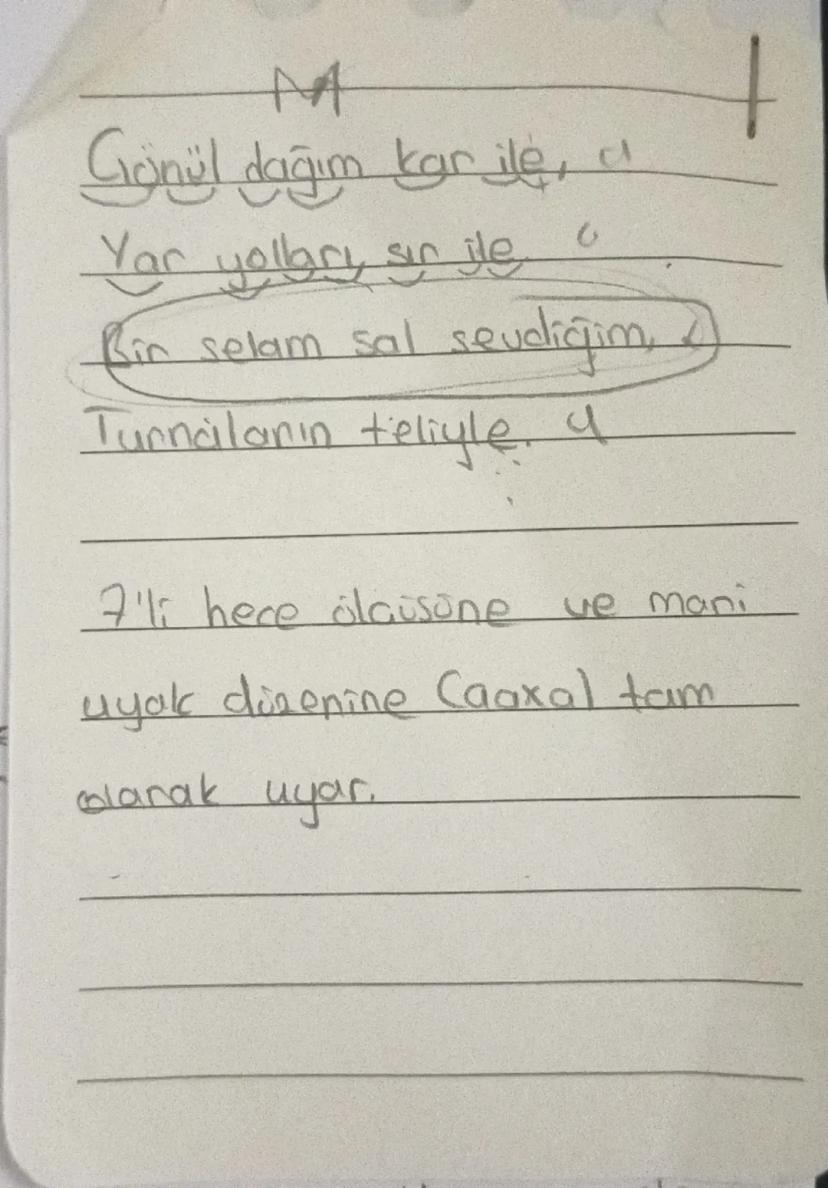 M
Gönül dağım kar ile, a
Yar yolları sır ile a
Bir selam sal sevdiğim,
Turnaların teliyle. a
7'li hece ölçüsüne ve mani
uyak düzenine (aaxa) tam
olarak uyar.